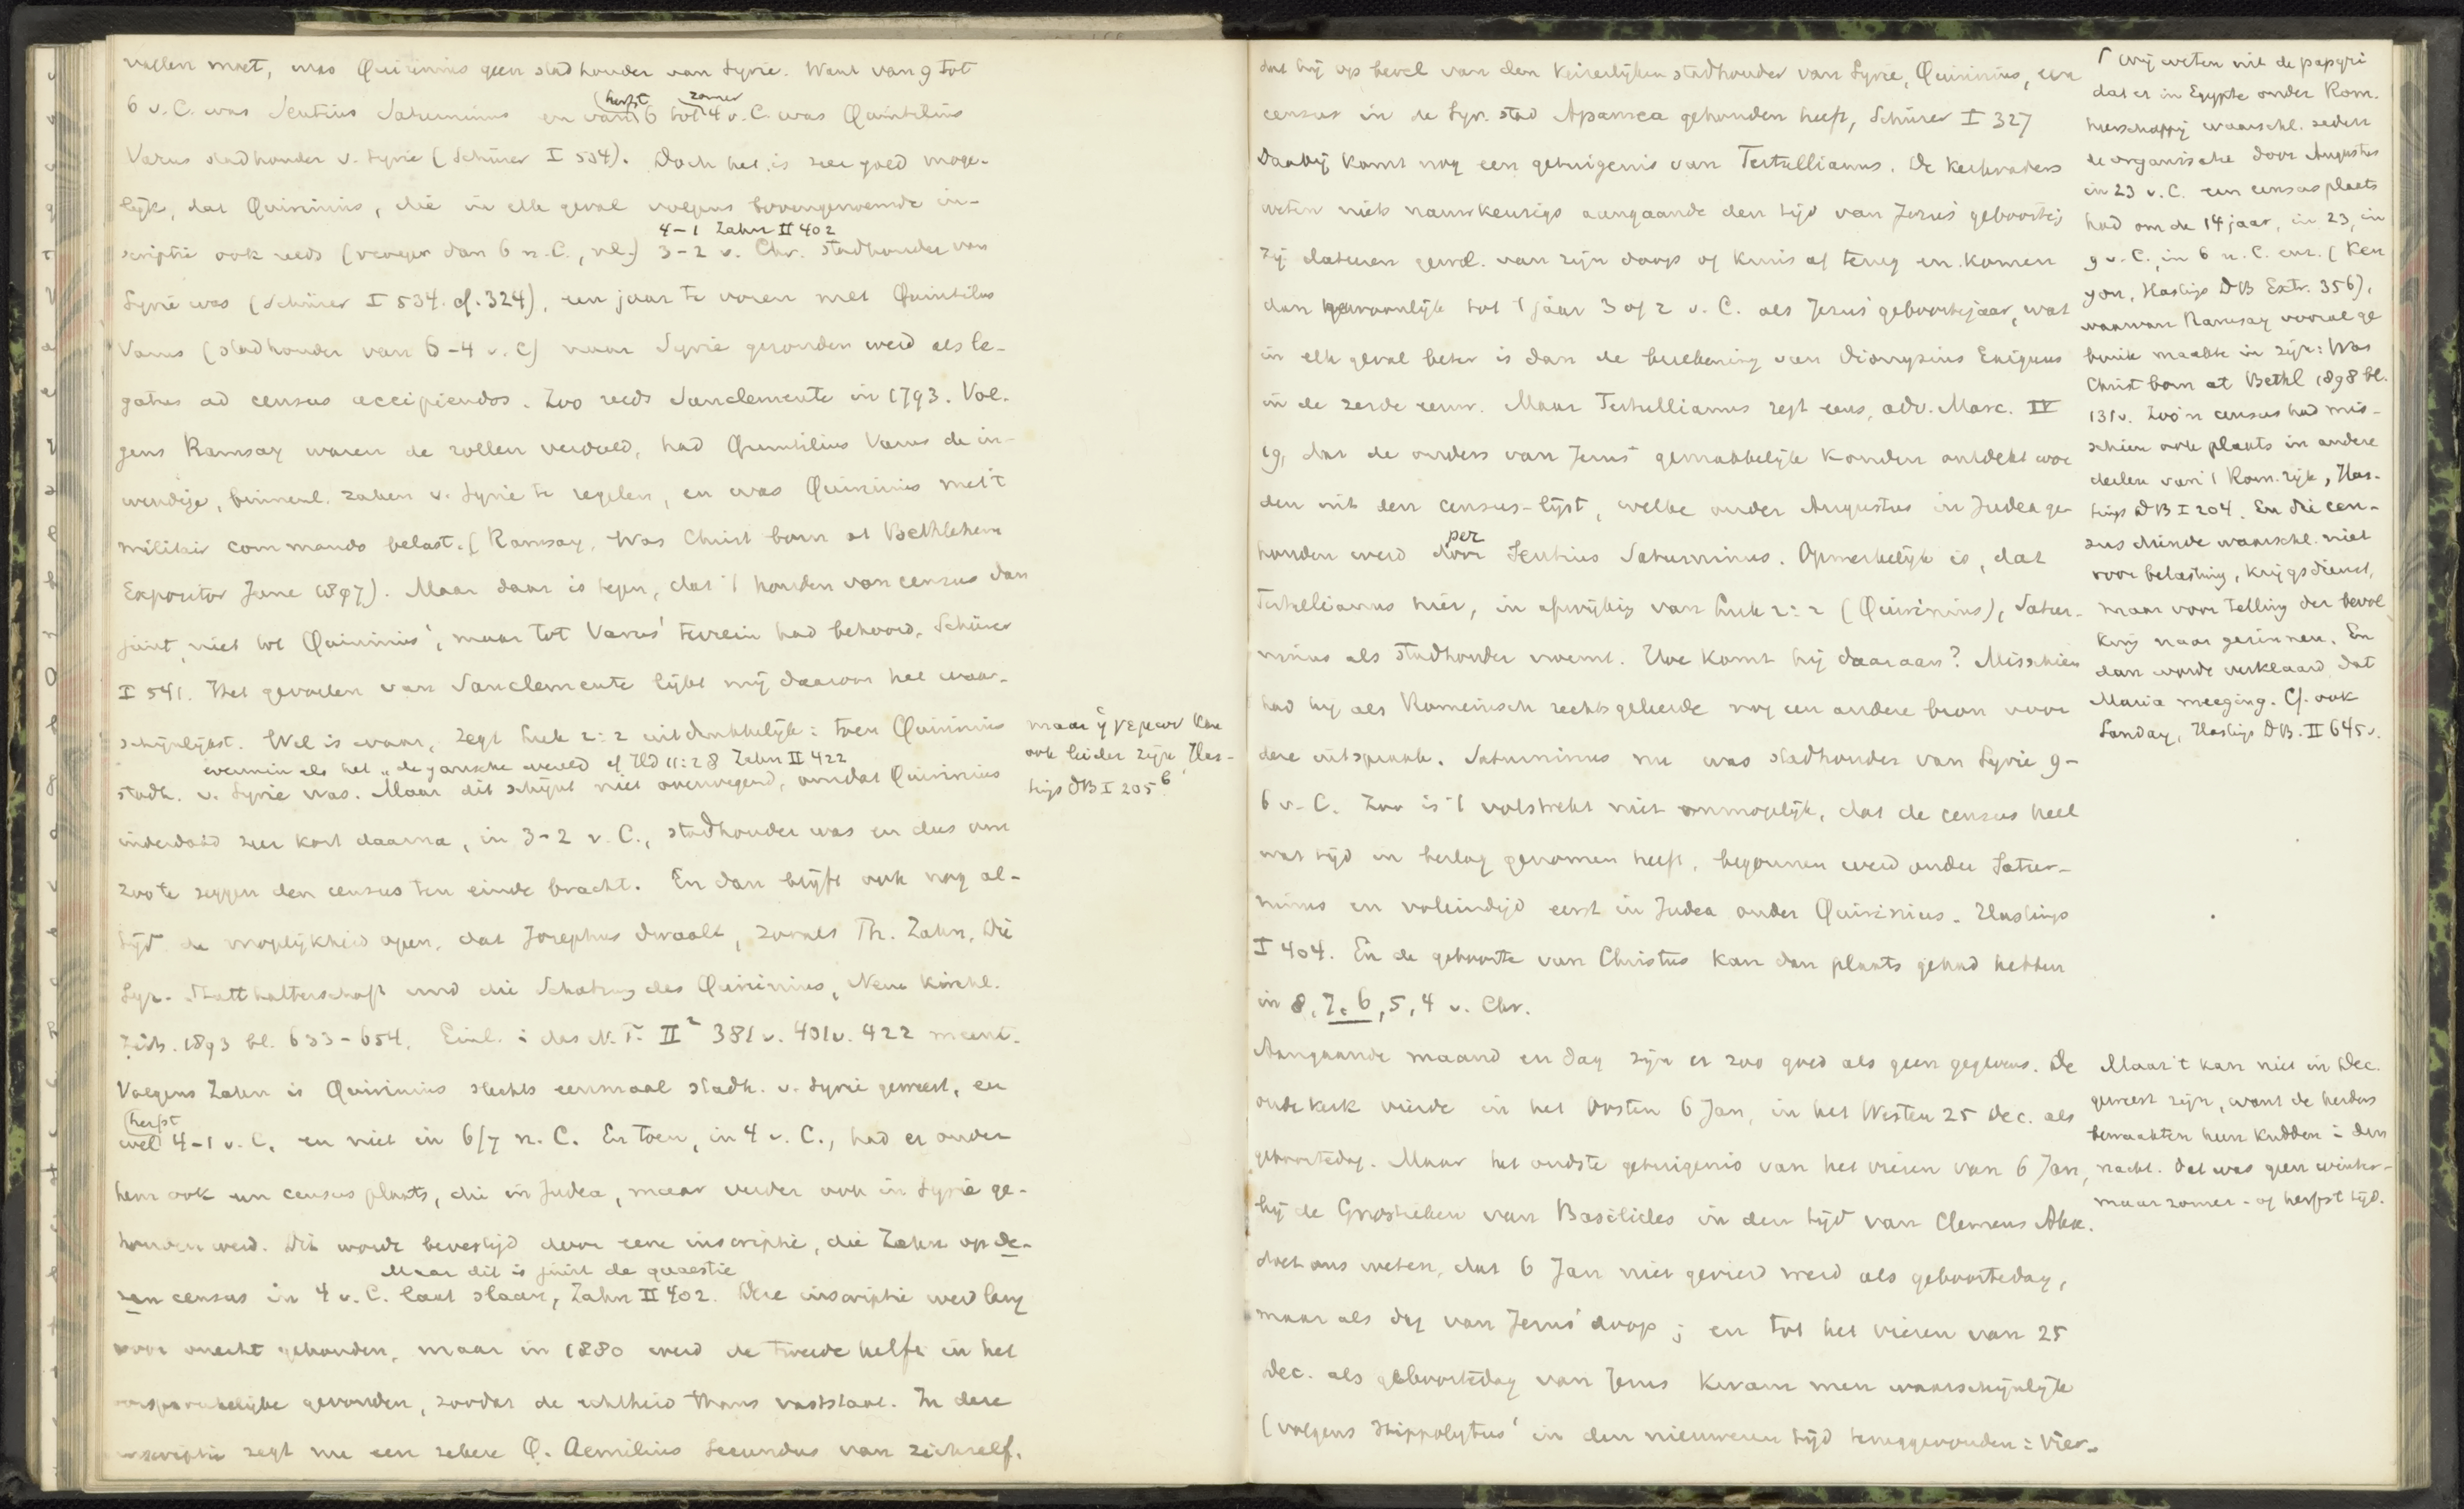 vallen moet, was Quirinius geen stadhouder van Syrie. Want van 9 tot
herfst zomer
6 v. C. was Sentius Saturninus en van 6 tot 4 v. C. was Quintilius
Varus stadhouder v. Syrie (Schürer I 534). Doch het is zeer goed moge-
lijk, dat Quirinius, die in elk geval volgens bovengenoemde in-
4-1 Zahn II 402
scriptie ook reeds (vroeger dan 6 n. C., nl.) 3-2 v. Chr. stadhouder van
Syrie was (Schürer I 534. cf. 324), een jaar te voren met Quintilius
Varus (stadhouder van 6-4 v. C) naar Syrie gezonden werd als le-
gatus ad census accipiendos. Zoo reeds Sanclemente in 1793. Vol-
gens Ramsay waren de rollen verdeeld, had Quintilius Varus de in-
wendige, binnenl. zaken v. Syrie te regelen, en was Quirinius met 't
militair commando belast. (Ramsay, Was Christ born at Bethlehem
Expositor June 1897). Maar daar is tegen, dat 't houden van census dan
juist niet tot Quirinius', maar tot Varus' terrein had behoord, Schürer
I 541. Het gevoelen van Sanclemente lijkt mij daarom het waar-
schijnlijkst. Wel is waar, zegt Luk 2:2 uitdrukkelijk: toen Quirinius
evenmin als het "de gansche wereld cf Hd 11:28 Zahn II 422
stadh. v. Syrie was. Maar dit schijnt niet overwegend, omdat Quirinius
inderdaad zeer kort daarna, in 3-2 v. C., stadhouder was en dus om
zoo te zeggen den census ten einde bracht. En dan blijft ook nog al-
tijd de mogelijkheid open, dat Josephus dwaalt, zooals Th. Zahn, Die
Syr. Statthalterschaft und die Schatzung des Quirinius, Neue Kirchl.
Zeits. 1893 bl. 633-654. Einl. i das N. T. II² 381 v. 401 v. 422 meent.
Volgens Zahn is Quirinius slechts eenmaal stadh. v. Syrie geweest, en
herfst
wel 4-1 v. C. en niet in 6/7 n. C. En toen, in 4 v. C., had er onder
hem ook een census plaats, die in Judea, maar verder ook in Syrie ge-
houden werd. Dit wordt bevestigd door eene inscriptie, die Zahn op de-
Maar dit is juist de quaestie
zen census in 4 v. C. laat slaan, Zahn II 402. Deze inscriptie werd lang
voor onecht gehouden, maar in 1880 werd de tweede helft in het
oorspronkelijke gevonden, zoodat de echtheid thans vaststaat. In deze
inscriptie zegt nu een zekere Q. Aemilius Secundus van zichzelf,
maar ἡγεμων kan
ook leider zijn, Has-
tings DB I 205 b
dat hij op bevel van den keizerlijken stadhouder van Syrie, Quirinius, een
census in de Syr. stad Apamea gehouden heeft, Schürer I 327
Daarbij komt nog een getuigenis van Tertullianus. De kerkvaders
weten niets nauwkeurigs aangaande den tijd van Jezus' geboortej
Zij dateeren gewl. van zijn doop of kruis af terug en komen
dan gewoonlijk tot 't jaar 3 of 2 v. C. als Jezus' geboortejaar, wat
in elk geval beter is dan de berekening van Dionysius Exiguus
in de zesde eeuw. Maar Tertullianus zegt eens, adv. Marc. IV
19, dat de ouders van Jezus gemakkelijk konden ontdekt wor
den uit den census-lijst, welke onder Augustus in Judea ge-
per
houden werd door Sentius Saturninus. Opmerkelijk is, dat
Tertullianus hier, in afwijking van Luk 2:2 (Quirinius), Satur-
ninus als stadhouder noemt. Hoe komt hij daaraan? Misschien
had hij als Romeinsch rechtsgeleerde nog een andere bron voor
deze uitspraak. Saturninus nu was stadhouder van Syrie 9-
6 v. C. Zoo is 't volstrekt niet onmogelijk, dat de census heel
wat tijd in beslag genomen heeft, begonnen werd onder Satur-
ninus en voleindigd eerst in Judea onder Quirinius. Hastings
I 404. En de geboorte van Christus kan dan plaats gehad hebben
in 8, 7, 6, 5, 4 v. Chr.
Aangaande maand en dag zijn er zoo goed als geen gegevens. De
oude kerk vierde in het Oosten 6 Jan, in het Westen 25 Dec. als
geboortedag. Maar het oudste getuigenis van het vieren van 6 Jan,
bij de Gnostieken van Basilides in den tijd van Clemens Alex.
doet ons weten, dat 6 Jan niet gevierd werd als geboortedag,
maar als dag van Jezus' doop; en tot het vieren van 25
Dec. als geboortedag van Jezus kwam men waarschijnlijk
(volgens Hippolytus' in den nieuweren tijd teruggevonden: Vier-
Wij weten uit de papyri
dat er in Egypte onder Rom.
heerschappij waarschl. sedert
de organisatie door Augustus
in 23 v. C. een census plaats
had om de 14 jaar, in 23, in
9 v. C., in 6 n. C. enz. (Ken
yon, Hastings DB Extr. 356),
waarvan Ramsay vooral ge
bruik maakte in zijn: Was
Christ born at Bethl 1898 bl.
131 v. Zoo'n census had mis-
schien ook plaats in andere
deelen van 't Rom. rijk, Has-
tings DB I 204. En die cen-
sus diende waarschl. niet
voor belasting, krijgsdienst,
maar voor telling der bevol
king naar gezinnen. En
dan wordt verklaard dat
Maria meeging. Cf. ook
Sanday, Hastings DB. II 645 v.
Maar 't kan niet in Dec.
geweest zijn, want de herders
bewaakten hun kudden i den
nacht. Dat was geen winter-
maar zomer- of herfsttijd.